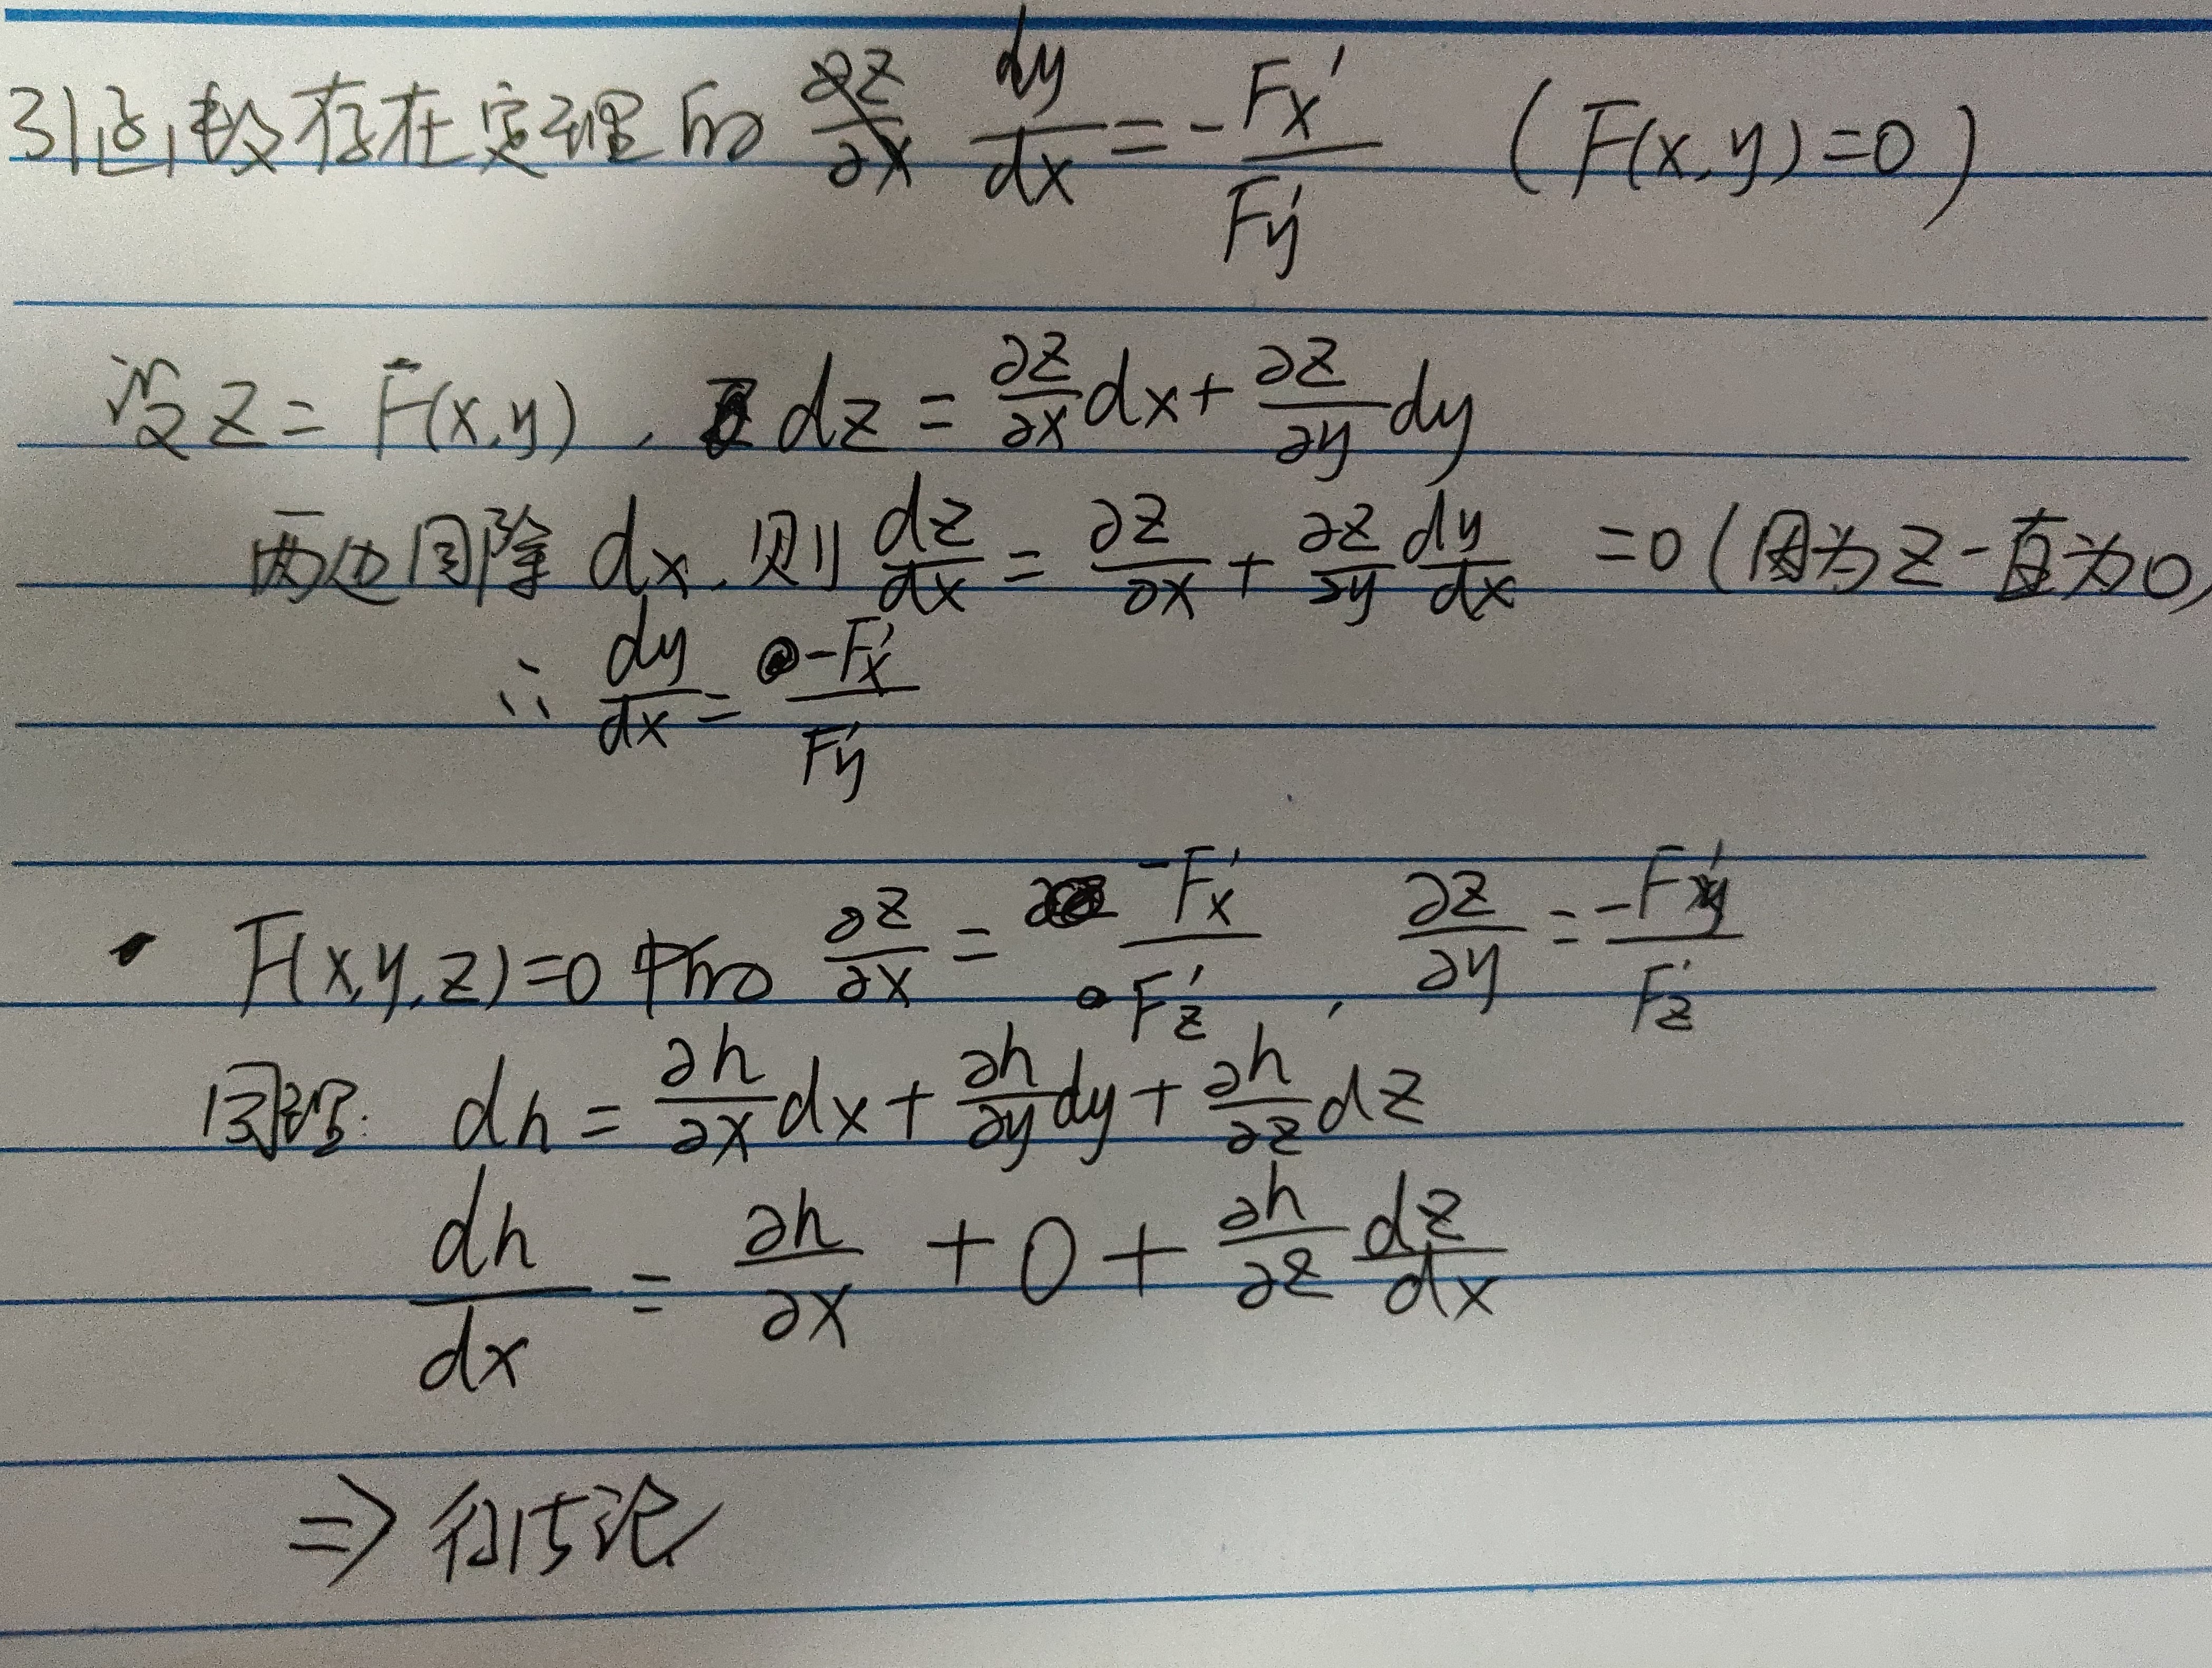 引函数存在定理的 dy/dx = -Fx′/Fy′ (F(x,y)=0)
设 z = F(x,y), dz = ∂z/∂x dx + ∂z/∂y dy
两边同除 dx, 则 dz/dx = ∂z/∂x + ∂z/∂y dy/dx = 0 (因为 z 一直为0)
∴ dy/dx = -Fx′/Fy′
· F(x,y,z)=0 中的 ∂z/∂x = -Fx′/Fz′, ∂z/∂y = -Fy′/Fz′
同理: dh = ∂h/∂x dx + ∂h/∂y dy + ∂h/∂z dz
dh/dx = ∂h/∂x + 0 + ∂h/∂z dz/dx
⇒ 得结论